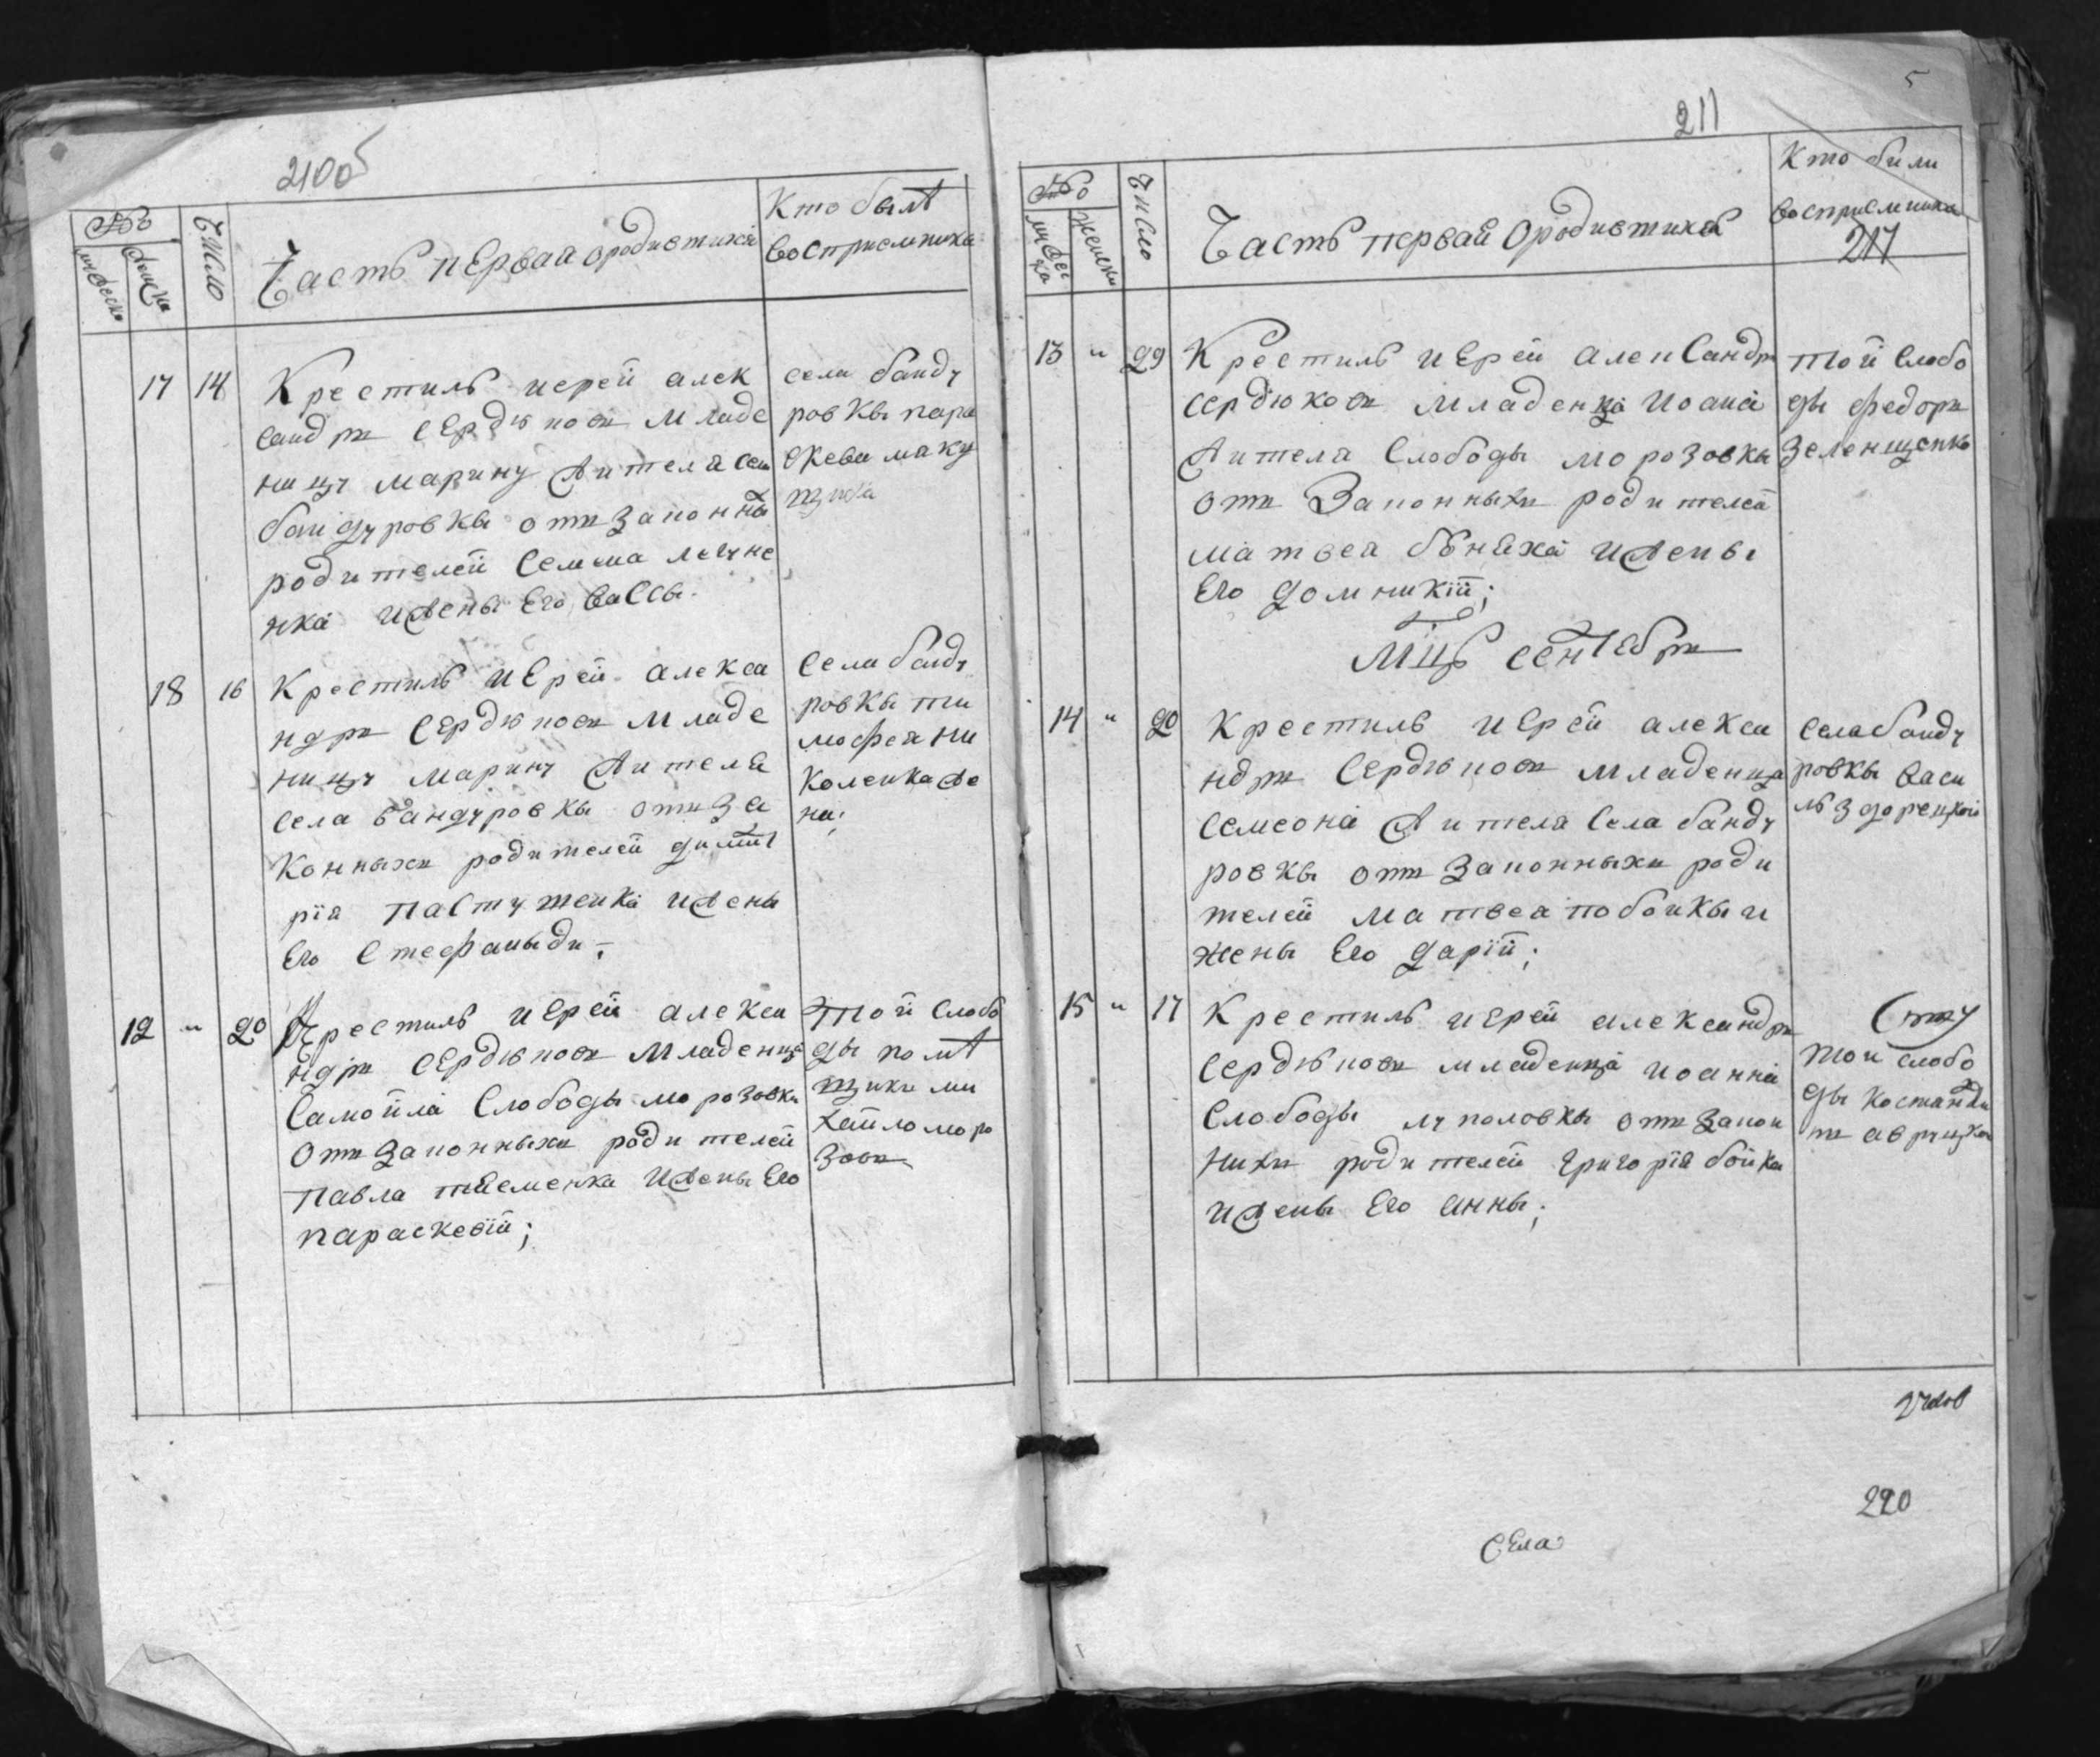 210об
№
Число
Часть первая о родившихся
Кто былъ
восприемники
17 14
Крестилъ иерей алек
сандръ сердюковъ младе
ницу марину жителя сел
бандуровкы отъ законны
родителей
нка и жены его вассы.
села банду
ровкы пара
скева маку
18 16
Крестилъ иерей алекса
ндръ сердюковъ младе
ницу марину жителя
села бандуровкы отъ за
конныхъ родителей димит
рія пастушенка и жены
его стефаныди;
села банду
ровкы ти
мофея ни
коленка же
на;
12 " 20
Крестилъ иерей алекса
ндръ сердюковъ младенца
самойла слободы морозовки
отъ законныхъ родителей
павла и жены его
параскевій;
той слобо
ды помѣ
щикъ ми
хайло моро
зовъ
5
211
№
мужеска
женски
число
Часть первая о родившихся
Кто били
восприемники
217
13 " 29
Крестилъ иерей александръ
сердюковъ младенца иоана
жителя слободы морозовкы
отъ законныхъ родителей
матвея и жены
его домникій;
той слобо
ды федоръ
зеленщенко
мцъ сентебрь
14 " 20
крестилъ иерей алекса
ндръ сердюковъ младенца
семеона жителя села банду
ровкы отъ законныхъ роди
телей матвея побойкы и
жены его дарій;
села банду
ровкы васи
ль здорецкой
15 " 17
Крестилъ иерей александръ
сердюковъ младенца иоанна
слободы луполовкы отъ закон
нихъ родителей григорія бойка
и жены его анны;
той слобо
ды костанди
220
села